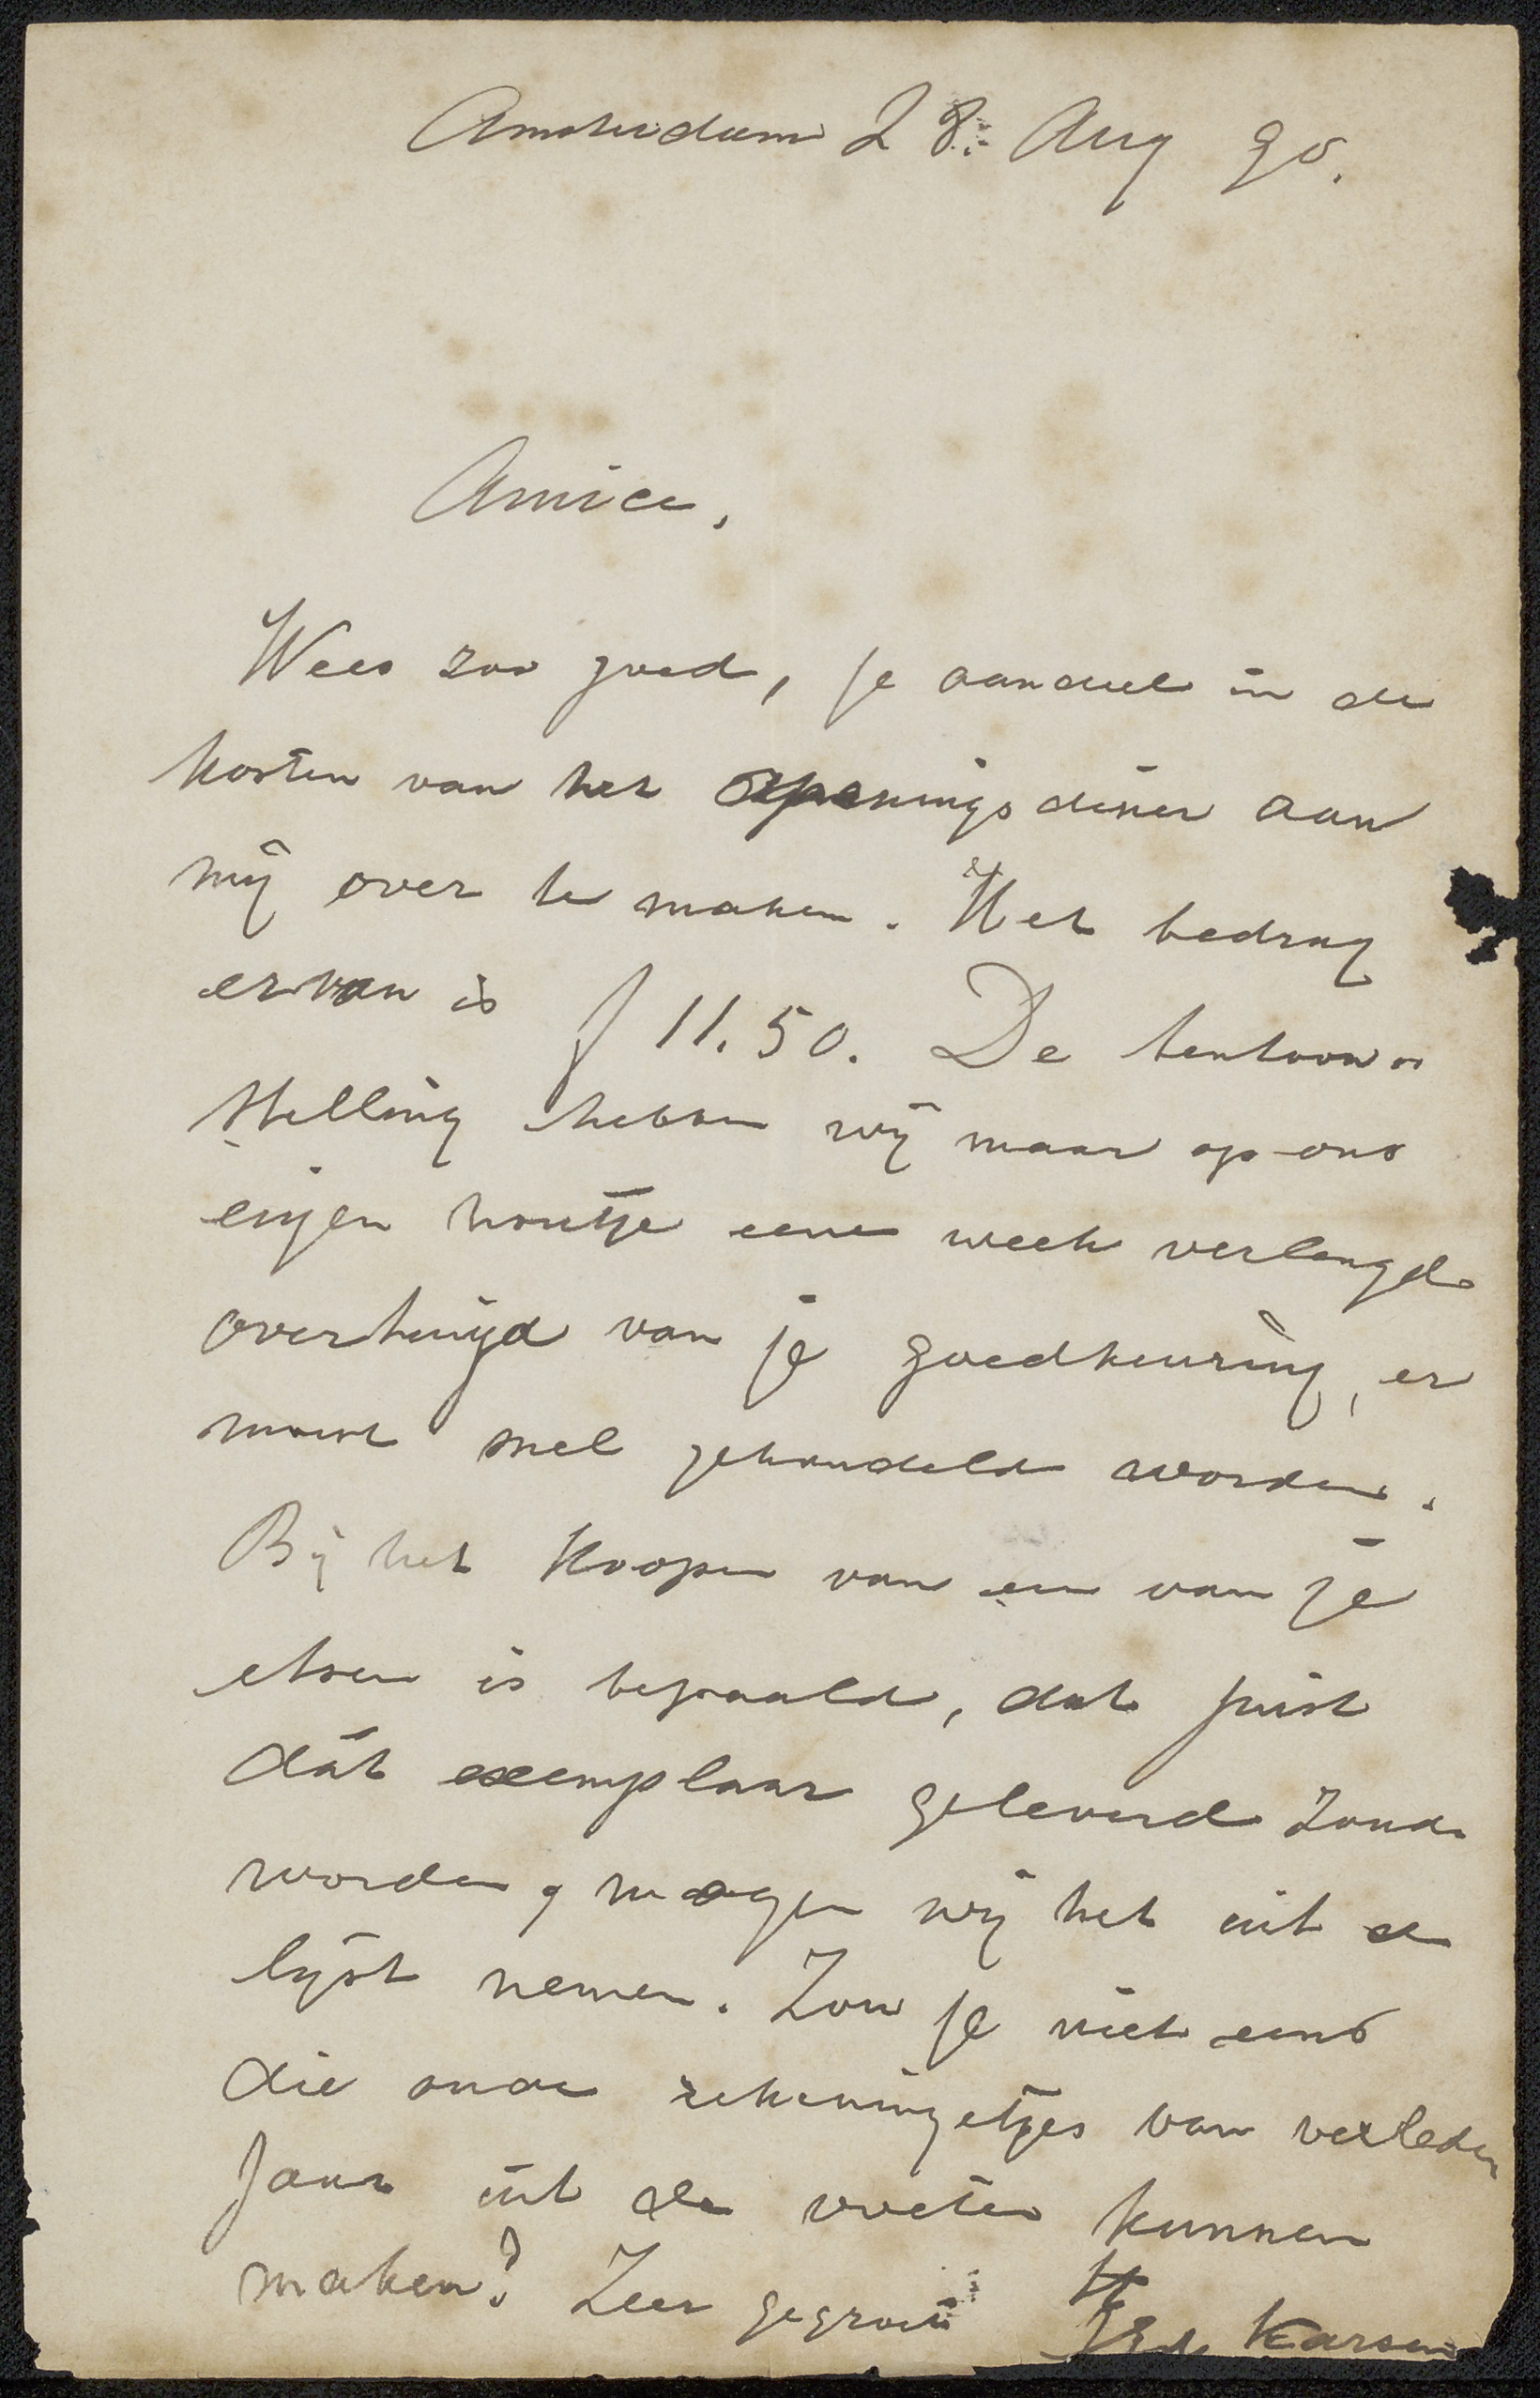 Amsterdam 28 Aug 90.
Amice,
Wees zoo goed, je aandeel in de
kosten van het openingsdiner aan
mij over te maken. Het bedrag
ervan is f 11.50. De tentoon=
stelling hebben wij maar op ons
eigen houtje eene week verlengd
overtuigd van je goedkeuring, er
moest snel gehandeld worden.
Bij het koopen van een van je
etsen is bepaald, dat juist
dát exemplaar geleverd zoude
worden, mogen wij het uit de
lijst nemen. Zou je niet eens
die oude rekeningetjes van verleden
jaar uit de voeten kunnen
maken? Zeer gegroet tt
Ed. Karsen